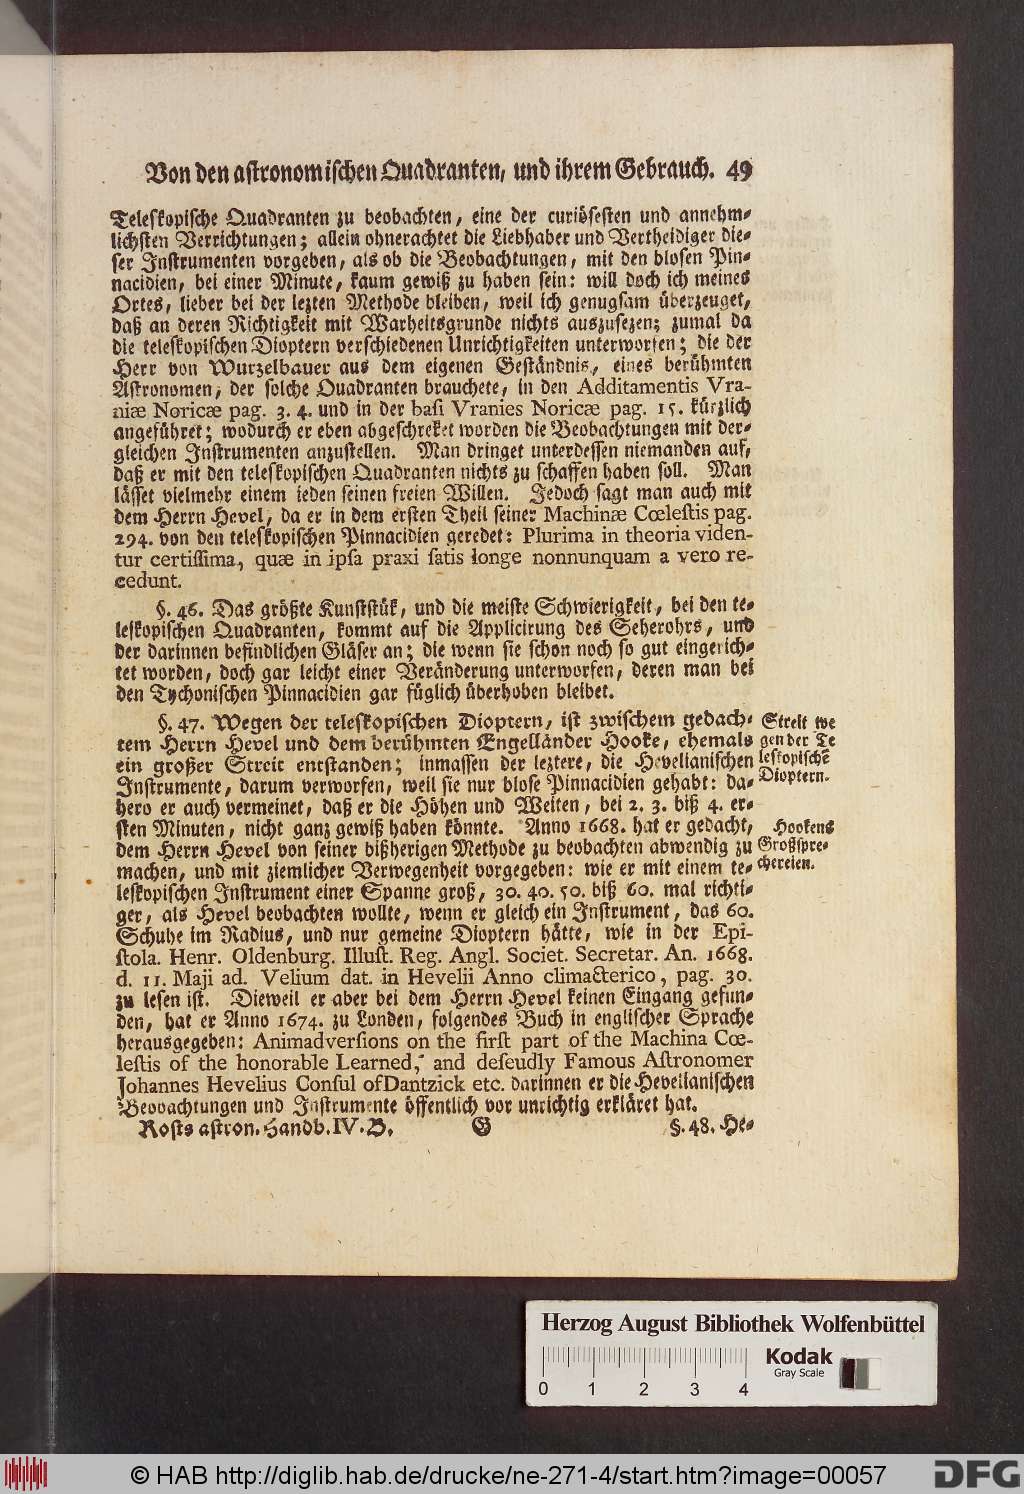 Von den astronomischen Quadranten, und ihrem Gebrauch. 49
Teleskopische Quadranten zu beobachten, eine der curiösesten und annehm-
lichsten Verrichtungen; allein ohnerachtet die Liebhaber und Vertheidiger die-
ser Instrumenten vorgeben, als ob die Beobachtungen, mit den blosen Pin-
nacidien, bei einer Minute, kaum gewiß zu haben sein: will doch ich meines
Ortes, lieber bei der lezten Methode bleiben, weil ich genugsam überzeuget,
daß an deren Richtigkeit mit Warheitsgrunde nichts auszusezen; zumal da
die teleskopischen Dioptern verschiedenen Unrichtigkeiten unterworfen; die der
Herr von Wurzelbauer aus dem eigenen Geständnis, eines berühmten
Astronomen, der solche Quadranten brauchete, in den Additamentis Vra-
niæ Noricæ pag. 3. 4. und in der basi Vranies Noricæ pag. 15. kürzlich
angeführet; wodurch er eben abgeschreket worden die Beobachtungen mit der-
gleichen Instrumenten anzustellen. Man dringet unterdessen niemanden auf,
daß er mit den teleskopischen Quadranten nichts zu schaffen haben soll. Man
lässet vielmehr einem ieden seinen freien Willen. Jedoch sagt man auch mit
dem Herrn Hevel, da er in dem ersten Theil seiner Machinæ Cœlestis pag.
294. von den teleskopischen Pinnacidien geredet: Plurima in theoria viden-
tur certissima, quæ in ipsa praxi satis longe nonnunquam a vero re-
cedunt.
§. 46. Das größte Kunststük, und die meiste Schwierigkeit, bei den te-
leskopischen Quadranten, kommt auf die Applicirung des Seherohrs, und
der darinnen befindlichen Gläser an; die wenn sie schon noch so gut eingerich-
tet worden, doch gar leicht einer Veränderung unterworfen, deren man bei
den Tychonischen Pinnacidien gar füglich überhoben bleibet.
§. 47. Wegen der teleskopischen Dioptern, ist zwischem gedach-
tem Herrn Hevel und dem berühmten Engelländer Hooke, ehemals
ein großer Streit entstanden; inmassen der leztere, die Hevelianischen
Instrumente, darum verworfen, weil sie nur blose Pinnacidien gehabt: da-
hero er auch vermeinet, daß er die Höhen und Weiten, bei 2. 3. biß 4. er-
sten Minuten, nicht ganz gewiß haben könnte. Anno 1668. hat er gedacht,
dem Herrn Hevel von seiner bißherigen Methode zu beobachten abwendig zu
machen, und mit ziemlicher Verwegenheit vorgegeben: wie er mit einem te-
leskopischen Instrument einer Spanne groß, 30. 40. 50. biß 60. mal richti-
ger, als Hevel beobachten wollte, wenn er gleich ein Instrument, das 60.
Schuhe im Radius, und nur gemeine Dioptern hätte, wie in der Epi-
stola. Henr. Oldenburg. Illust. Reg. Angl. Societ. Secretar. An. 1668.
d. 11. Maji ad. Velium dat. in Hevelii Anno climacterico, pag. 30.
zu lesen ist. Dieweil er aber bei dem Herrn Hevel keinen Eingang gefun-
den, hat er Anno 1674. zu Londen, folgendes Buch in englischer Sprache
herausgegeben: Animadversions on the first part of the Machina Cœ-
lestis of the honorable Learned, and deseudly Famous Astronomer
Johannes Hevelius Consul ofDantzick etc. darinnen er die Hevelianischen
Beobachtungen und Instrumente öffentlich vor unrichtig erkläret hat.
Rosts astron. Handb. IV. B. G §. 48. He-
Streit we
gen der Te
leskopischē
Dioptern.
Hookens
Großspre-
chereien.
Herzog August Bibliothek Wolfenbüttel
Kodak
Gray Scale
0 1 2 3 4
© HAB http://diglib.hab.de/drucke/ne-271-4/start.htm?image=00057
DFG